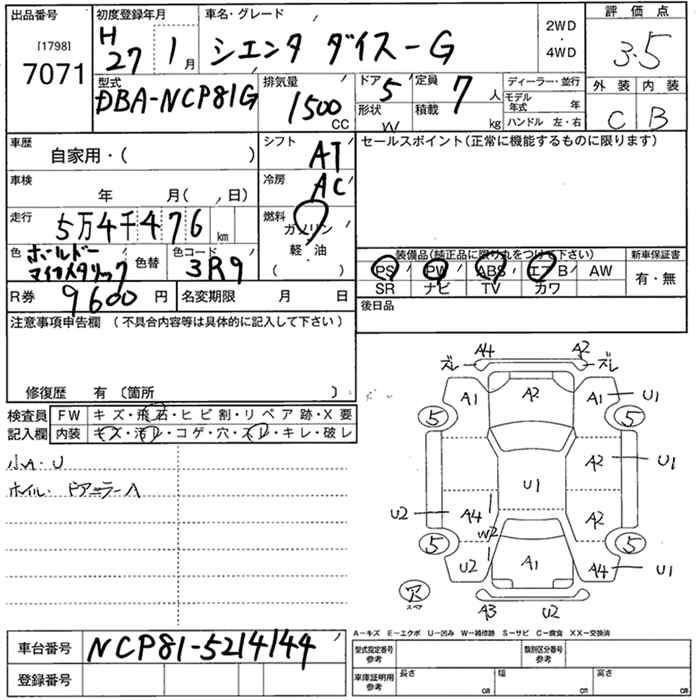 出品番号 初度登録年月 車名・グレード 評価点
[1798] 7071 H27 1月 シエンタ ダイスーG 2WD・4WD 3.5
型式 排気量 ドア 5 定員 7人 ディーラー・並行 外装 内装
DBA-NCP81G 1500 CC 形状 W 積載 kg モデル年式 年 C B
ハンドル 左・右
車歴 シフト セールスポイント(正常に機能するものに限ります)
自家用・( ) AT
車検 年 月( ,日) 冷房 AC
走行 5万4千476 km 燃料 ガソリン
色 色替 色コード 3R9 軽・油
( )
装備品(純正品に限り丸をつけて下さい) 新車保証書
PS PW ABS エアB AW 有・無
SR ナビ TV カワ
R券 9600円 名変期限 月 日 後日品
注意事項申告欄 (不具合内容等は具体的に記入して下さい)
修復歴 有〔箇所 〕
検査員 FW キズ・飛石・ヒビ割・リペア跡・X要
記入欄 内装 キズ・汚レ・コゲ・穴・スレ・キレ・破レ
小A・U
ホイル・ドアミラーA
ズレ A4 A2 ズレ
A1 A2 A1 U1
5 5
A2 U1
U1
U2 A4 W2 A2
5 5
U2 A1 A4 U1
穴
A3 U2
A-キズ E-エクボ U-凹み W-補修跡 S-サビ C-腐食 XX-交換済
車台番号 NCP81-5214144 型式指定番号 参考 類別区分番号 参考
登録番号 車庫証明用 参考 長さ cm 幅 cm 高さ cm